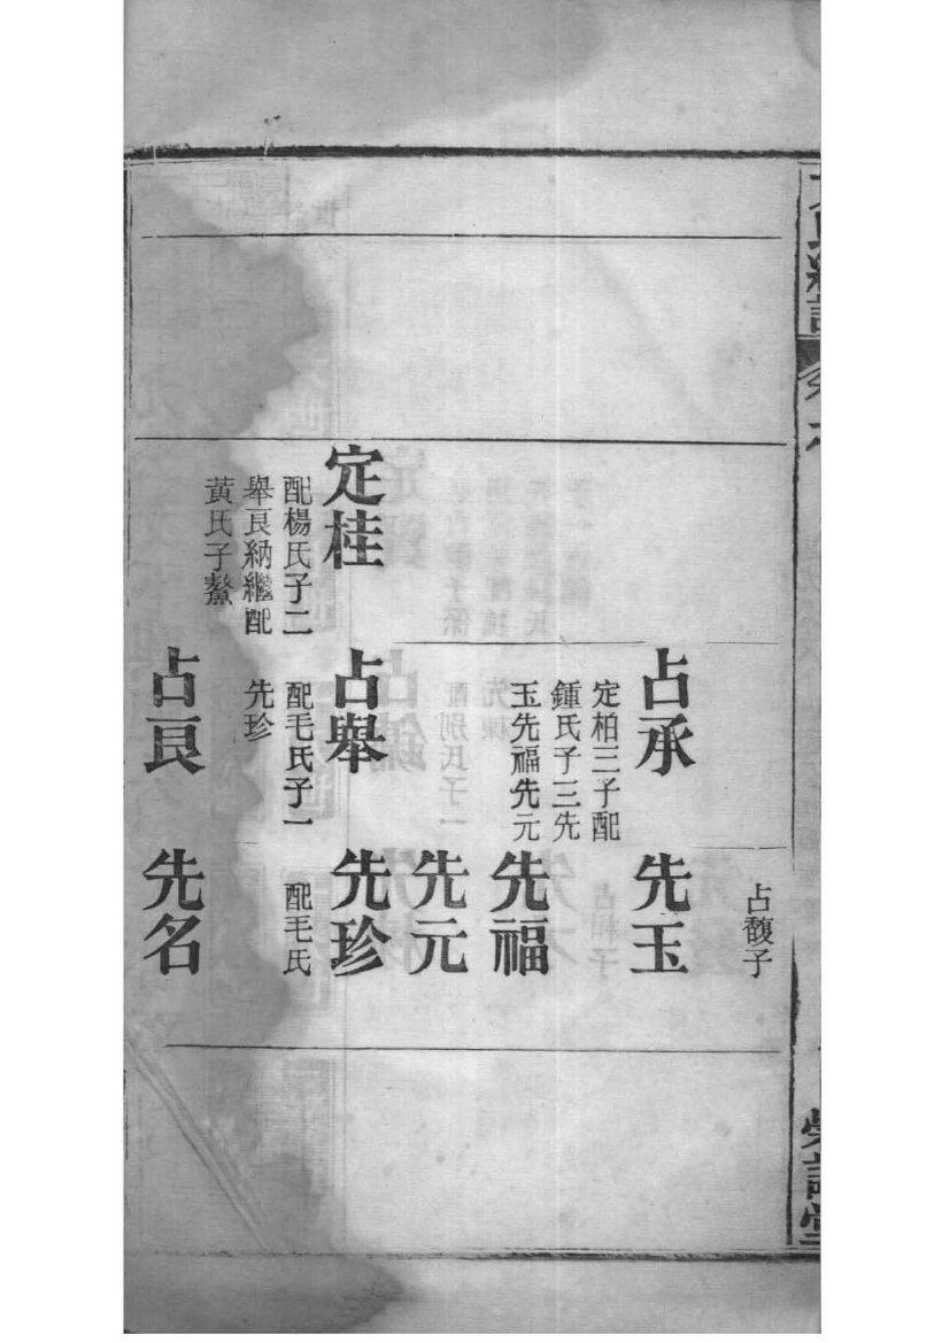 占馥子
占承
定柏三子配
鍾氏子三先
玉先福先元
先玉
先福
先元
定桂
配楊氏子二
舉良納繼配
黃氏子鰲
占舉
配毛氏子一
先珍
先珍
配毛氏
占良
先名